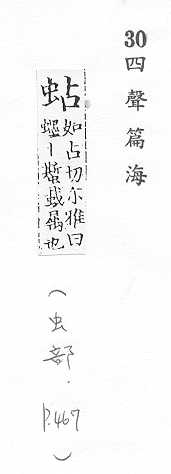 30 四聲篇海
蛅
如占切尔雅曰
蟔丨蟴蛓屬也
（虫部．P.467）